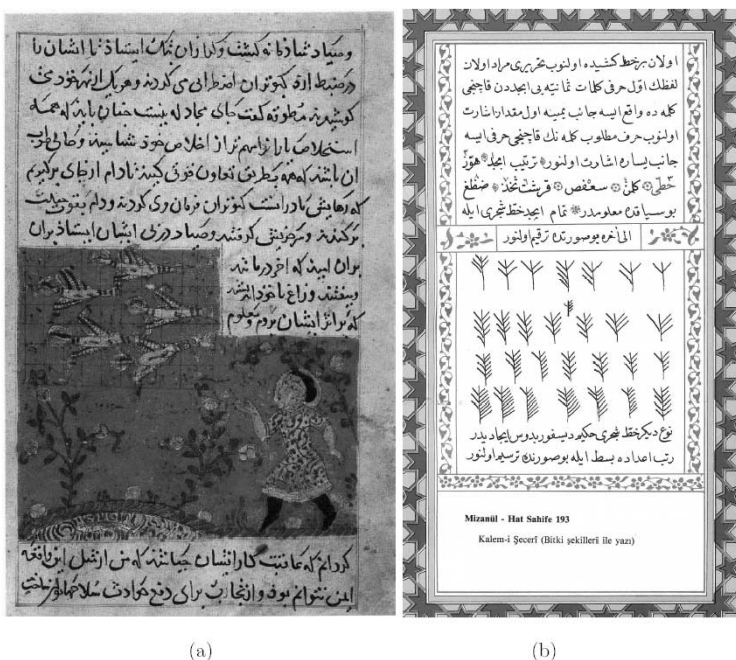 و صیاد شادمانه گشت و گرازان بتگ ایستاد تا ایشان را
در ضبط آرد کبوتران اضطرابی می کردند و هریک از بهر خود می
کوشیدند مطوقه گفت جای مجادله نیست چنان باید که همه
استخلاص یاران مهم تر از خلاص خود شناسند و حالی صواب
آن باشد که همه بطریق تعاون قوتی کنید تا دام از جای برگیریم
که رهایش ما در آنست کبوتران فرمان وی کردند و دام بقوت
برکندند و سر خویش گرفتند و صیاد در پی ایشان ایستاد بران
بران امید که آخر درمانند
و بیفتند و زاغ با خود اندیشید
که بر اثر ایشان بروم و معلوم
گردانم که عاقبت کار ایشان چه باشد که من از مثل این واقعه
ایمن نتوانم بود و از تجارب برای دفع حوادث سلاحها توان ساخت
(a)
اولان برخط كشیده اولنوب تحریری مراد اولان
لفظك اوّل حرفی كلمات ثمانیه‌ٔ ابجددن قاچنجی
كلمه ده واقع ایسه جانب یمینه اول مقدار اشارت
اولنوب حرف مطلوب كلمه نك قاچنجی حرفی ایسه
جانب یساره اشارت اولنور ترتیب ابجد هوّز
حطّی كلمن سعفص قرشت ثخذ ضظغ
بو سیاقده معلومدر تمام ابجد خط شجری ایله
الی آخره بو صورتده ترقیم اولنور
نوع دیكر خط شجری حكیم دیسقوریدوس ایجادیدر
رتب اعداده بسط ایله بو صورتده ترسیم اولنور
Mizanül - Hat Sahife 193
Kalem-i Şecerî (Bitki şekilleri ile yazı)
(b)